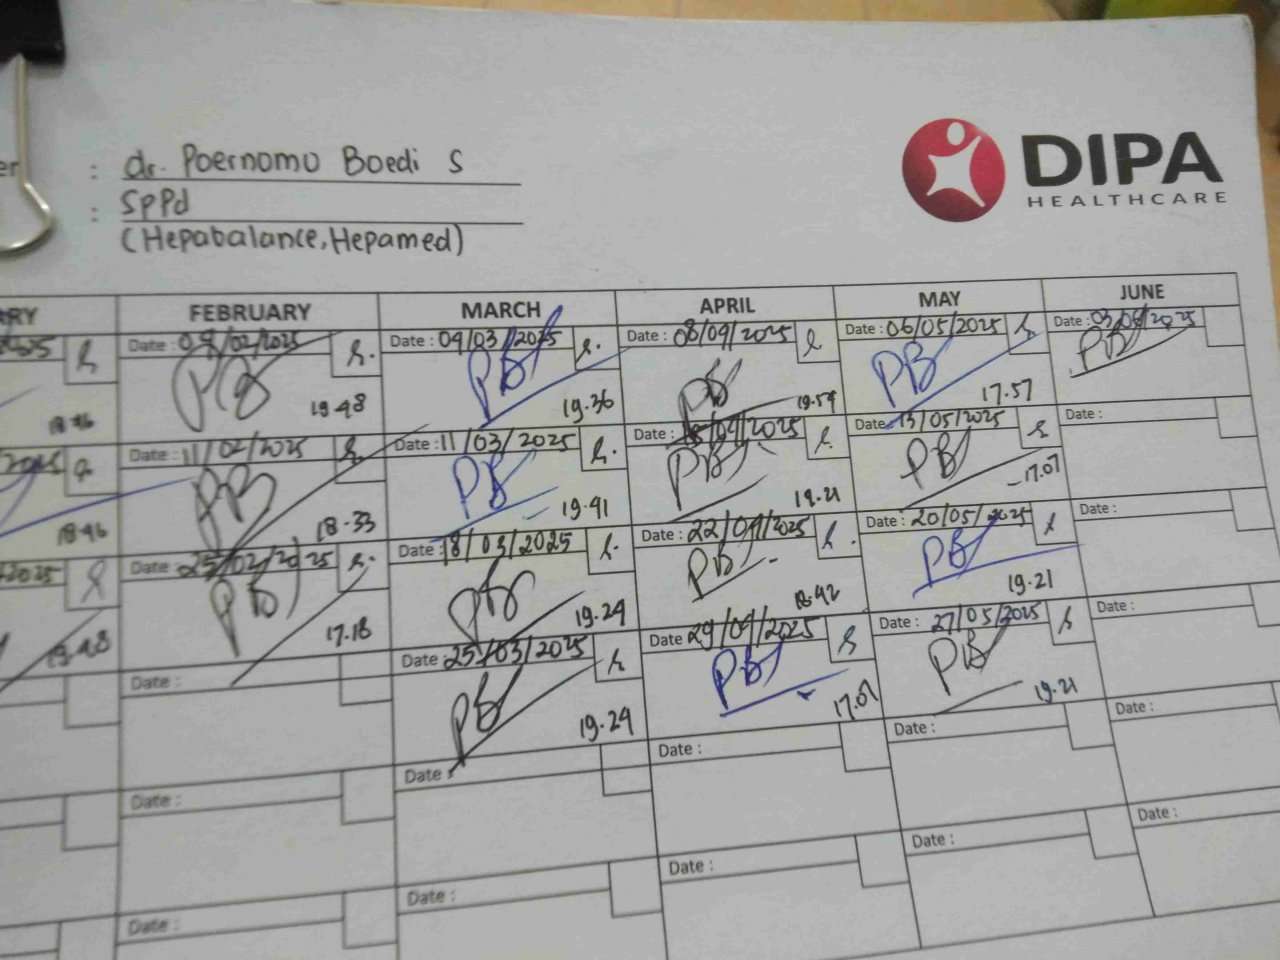 : dr. Poernomo Boedi S
: SpPd
(Hepabalance, Hepamed)
DIPA
HEALTHCARE
FEBRUARY MARCH APRIL MAY JUNE
Date : 04/02/2025 Date : 04/03/2025 Date : 08/04/2025 Date : 06/05/2025 Date : 03/06/2025
PB PB PB PB PB
19.48 19.36 19.54 17.57
Date : 11/02/2025 Date : 11/03/2025 Date : Date : 13/05/2025 Date :
PB PB PB PB
18.46 18.33 19.41 19.21 17.07
Date : 25/02/2025 Date : 18/03/2025 Date : 22/04/2025 Date : 20/05/2025 Date :
PB PB PB PB
17.18 19.24 18.42 19.21
Date : Date : 25/03/2025 Date : 29/04/2025 Date : 27/05/2025 Date :
PB PB PB
19.24 17.07 19.21
Date : Date : Date : Date : Date :
Date : Date : Date : Date : Date :